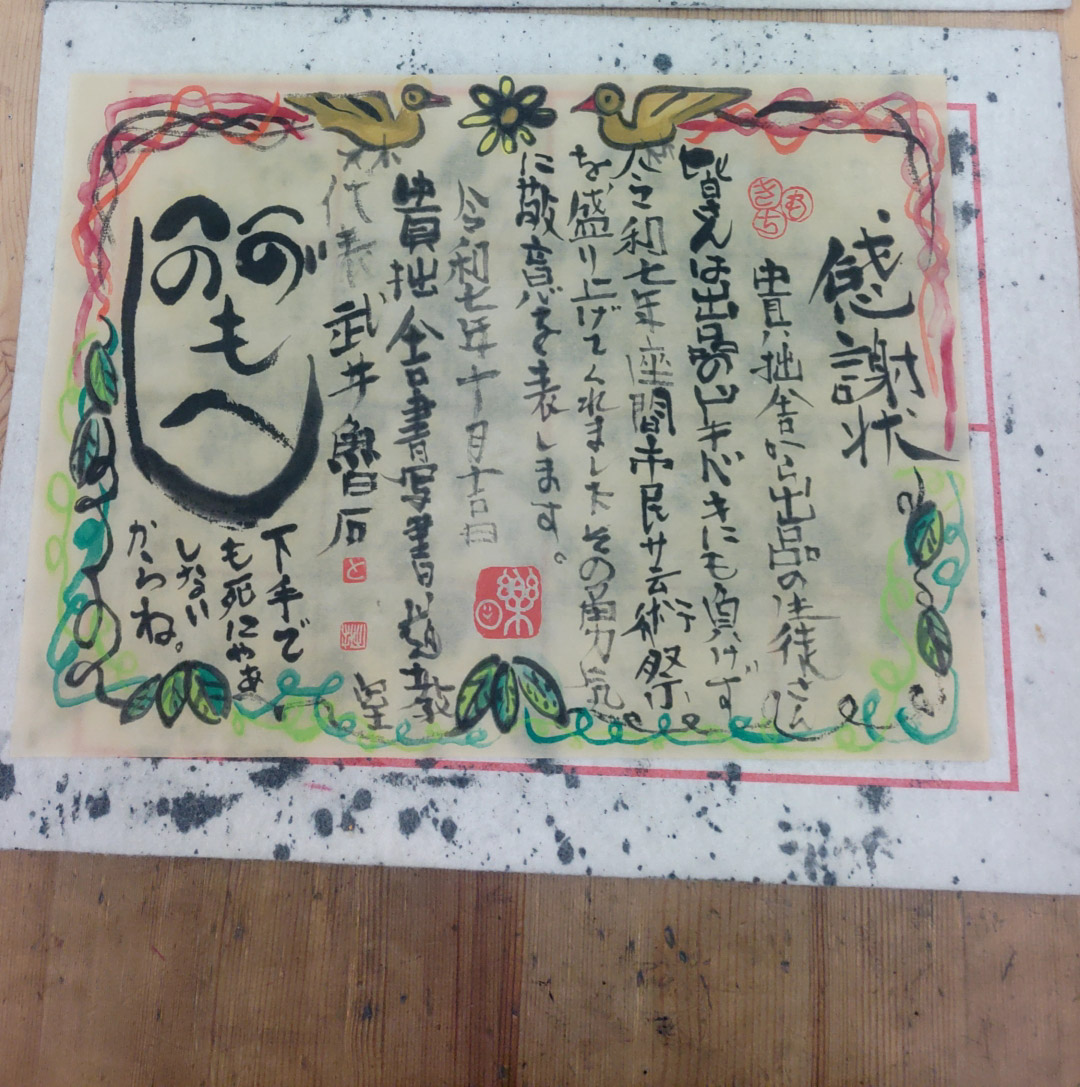 感謝状
貴拙舎から出品の生徒さん
皆さんは出品のドキドキにも負けず
令和七年座間市民芸術祭
を盛り上げてくれましたその勇気
に敬意を表します。
令和七年十月吉日
貴拙舎書写書道教室
代表 武井魯石
へへ
のの
も
へ
下手で
も死にゃあ
しない
からね。
楽